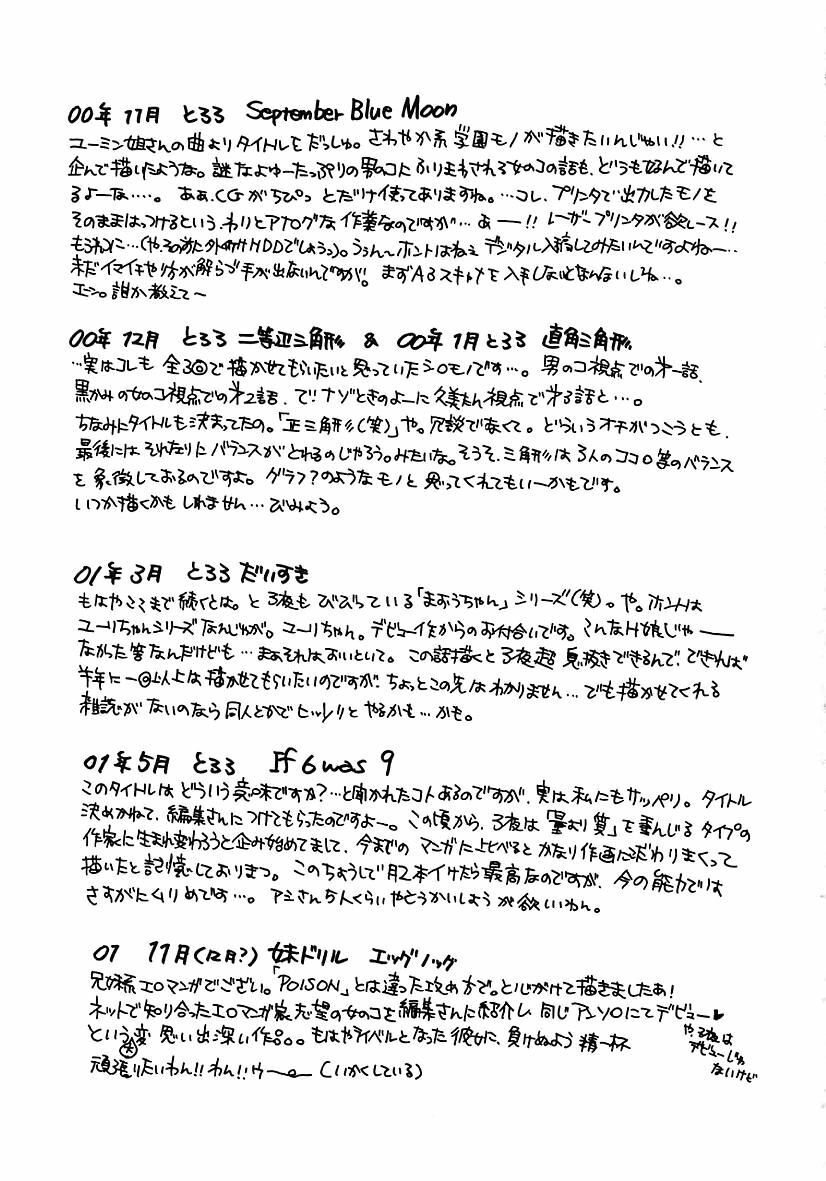 00年11月 とろろ September Blue Moon
ユーミン姐さんの曲よりタイトルをだっしゅ。さわやか系学園モノが描きたいんじゃい!!…と
企んで描いたような。謎なよゆーたっぷりの男のコにふりまわされる女のコの話も、どうもなんで描いて
るよーな‥‥。ああ、CGがちぴっとだけ使ってありますね。…コレ、プリンタで出力したモノを
そのままはっつけるという、わりとアナログな作業なのですが…あー!!レーザープリンタが欲しース!!
もろわに…(や、その前に外付けHDDでしょうっ)。うぅん~ホントはねぇデジタル入稿してみたいんですよねー‥
未だイマイチやり方が解らず手が出ないんですが!まずA3スキャナを入手しないとなんないしね…。
エーン。誰か教えて~
00年12月 とろろ 二等辺三角形 & 00年1月とろろ 直角三角形
…実はコレも全3回で描かせてもらいたいと思っていたシロモノです…。男のコ視点での第一話、
黒かみの女のコ視点での第2話、で!ナゾときのよーに久美たん視点で第3話と…。
ちなみにタイトルも決まってたの。「正三角形(笑)」や。冗談でなくて。どういうオチがつこうとも、
最後にはそれなりにバランスがとれるのじゃろう。みたいな。そうそ、三角形は3人のココロ等のバランス
を象徴しておるのですよ。グラフ?のようなモノと思ってくれてもいーかもです。
いつか描くかもしれません…びみょう。
01年3月 とろろ だいすき
もはやここまで続くとは。と3夜もびびっている「まおうちゃん」シリーズ(笑)。や。ホントは
ユーリちゃんシリーズなんじゃが。ユーリちゃん。デビュー作からのお付合いです。こんなH娘じゃー
なかった筈なんだけども…まぁそれはおいといて。この話描くと3夜超息抜きできるんで、できれば
半年に一回以上は描かせてもらいたいのですが、ちょっとこの先はわかりません…でも描かせてくれる
雑誌がないのなら同人とかでヒッソリとやるかも…かも。
01年5月 とろろ If 6 was 9
このタイトルはどういう意味ですか?…と聞かれたコトあるのですが、実は私にもサッパリ。タイトル
決めかねて、編集さんにつけてもらったのですよー。この頃から、3夜は「量より質」を重んじるタイプの
作家に生まれ変わろうと企み始めてまして、今までのマンガに比べるとかなり作画にこだわりまくって
描いたと記憶しておりまつ。このちょうしで月2本イけたら最高なのですが、今の能力では
さすがにムリめです…。アシさん5人くらいやとうかいしょうが欲いわん。
01 11月(12月?) 妹ドリル エッグノッグ
兄妹系エロマンガでござい。「POISON」とは違った攻め方で。と心がけて描きましたぁ!
ネットで知り合ったエロマンガ家志望の女のコを編集さんに紹介し同じアンソロにてデビュー♥
という変(笑)思い出深い作品。もはやライバルとなった彼女に、負けぬよう精一杯
頑張りたいわん!!わん!!ウー(いかくしている)
や、3夜は
デビューじゃ
ないけど